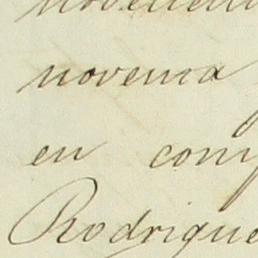 novema
en com
Rodrigue